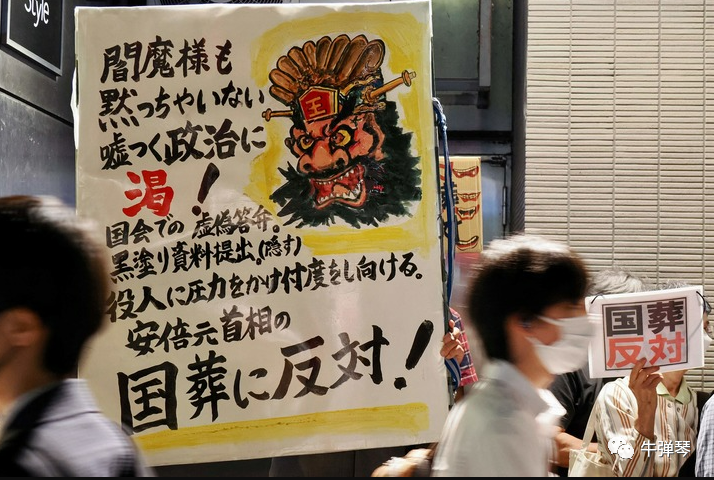 Style
閻魔様も
黙っちゃいない
嘘つく政治に
渇!
王
国会での 虚偽答弁。
黒塗り資料提出。(隠す)
役人に圧力をかけ忖度をし向ける。
安倍元首相の
国葬に反対!
国葬
反対
牛弹琴